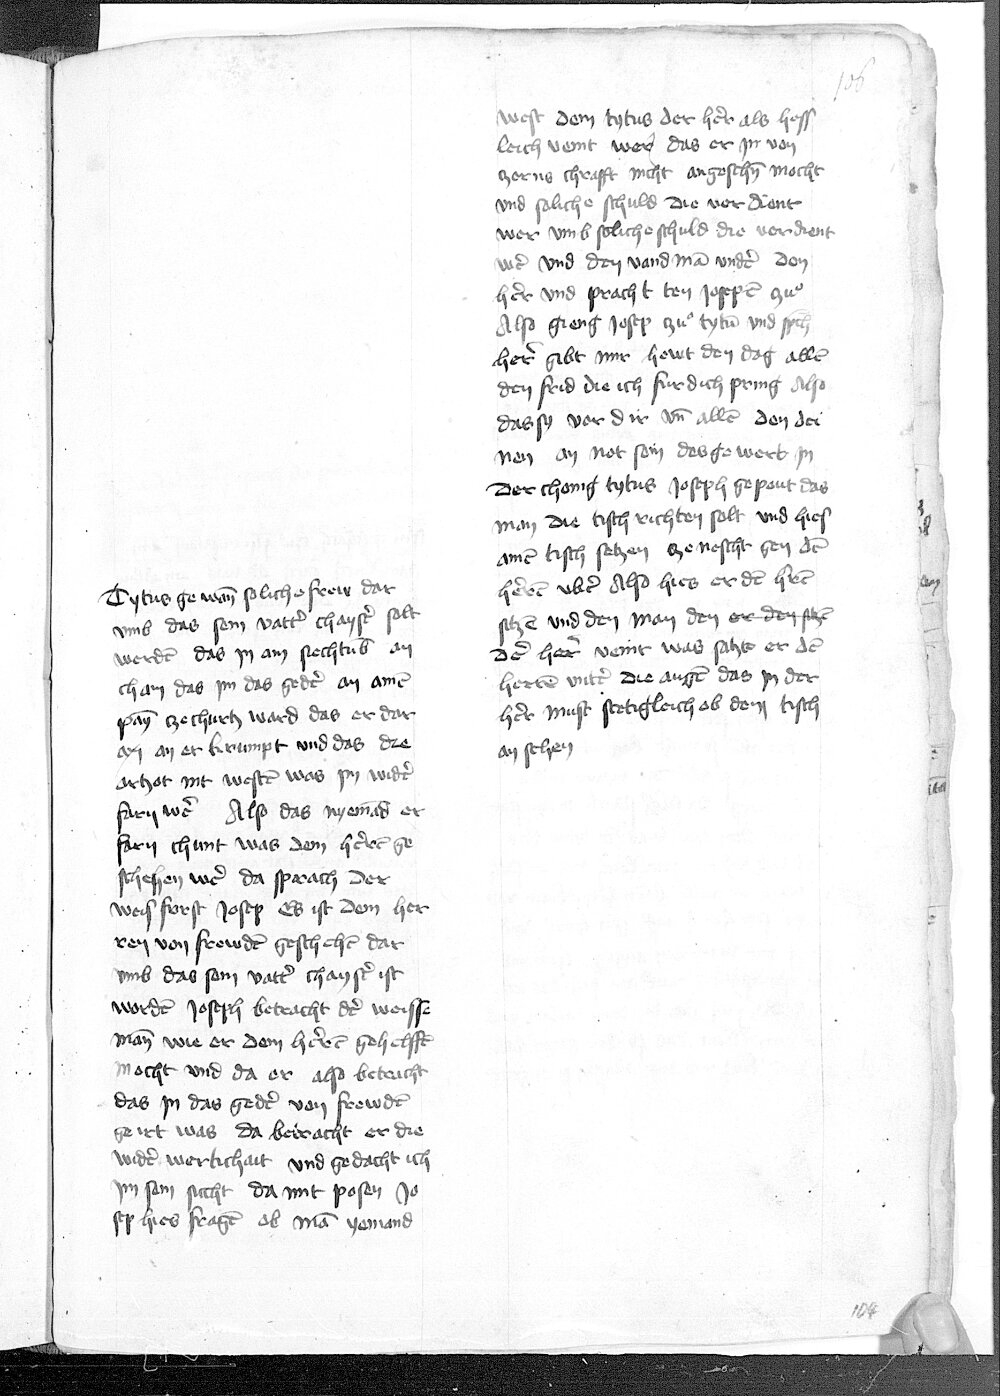 106
Tytus gewan̄ soliche frew dar
vmb das sein vatt̉ chayst̉ solt
werdē das jn am siechtub̄ an
cham das im das gedr̉ an ainē
payn̄ zechurtz ward das er dar
an an er krumpt vnd das die
artzet nit westē was jn wider̉
farn wer̉ Also das nyemād er
farn chunt was dem hēr̉ē ge
schehen wer̉ da sprach Der
weis fürst Josep Es ist dem her
ren von frewdē geschehē dar
vmb das sein vatt̉ chayst̉ ist
wordē Joseph betracht dr̉ weisse
man̄ wie er dem her̉rē gehelffē
mocht vnd da er also betracht
das jn das gedr̉ von frewdē
geirt was Da betracht er die
wider̉ wertichait vnd gedacht ich
im sein sucht da mit posen Jo
sep hies fragē ob mā yemand
west dem tytus der her̉ als hess
leich veint wer das er jn von
zorns chrafft nicht angesehn̄ mocht
vnd soliche schuld Die verdient
wer vmb soliche schuld die verdient
wer̉ vnd den vand mā vnder̉ Den
her̉r vnd pracht ten Josepē zuͦ
Also gieng Josep zuͦ tytū vnd spch
her̉ gibt mir hewt den dag allē
den frid die ich fur dich pring Also
das sy vor dir vn̄ allē den dei
nen an not sein des gewert jn
Der chonig tytus Joseph gepeut das
man die tisch richten solt vnd hies
ainē tisch setzen ze nechst gen dē
her̉rē vber̉ Also hies er dē hr̉rē
sitzē vnd den man den er den sitzē
Der̉ her̉ veint was satzt er dē
herrē vnter̉ Die augē das jn der
her̉r must stetigleich ob dem tisch
an sehen
104